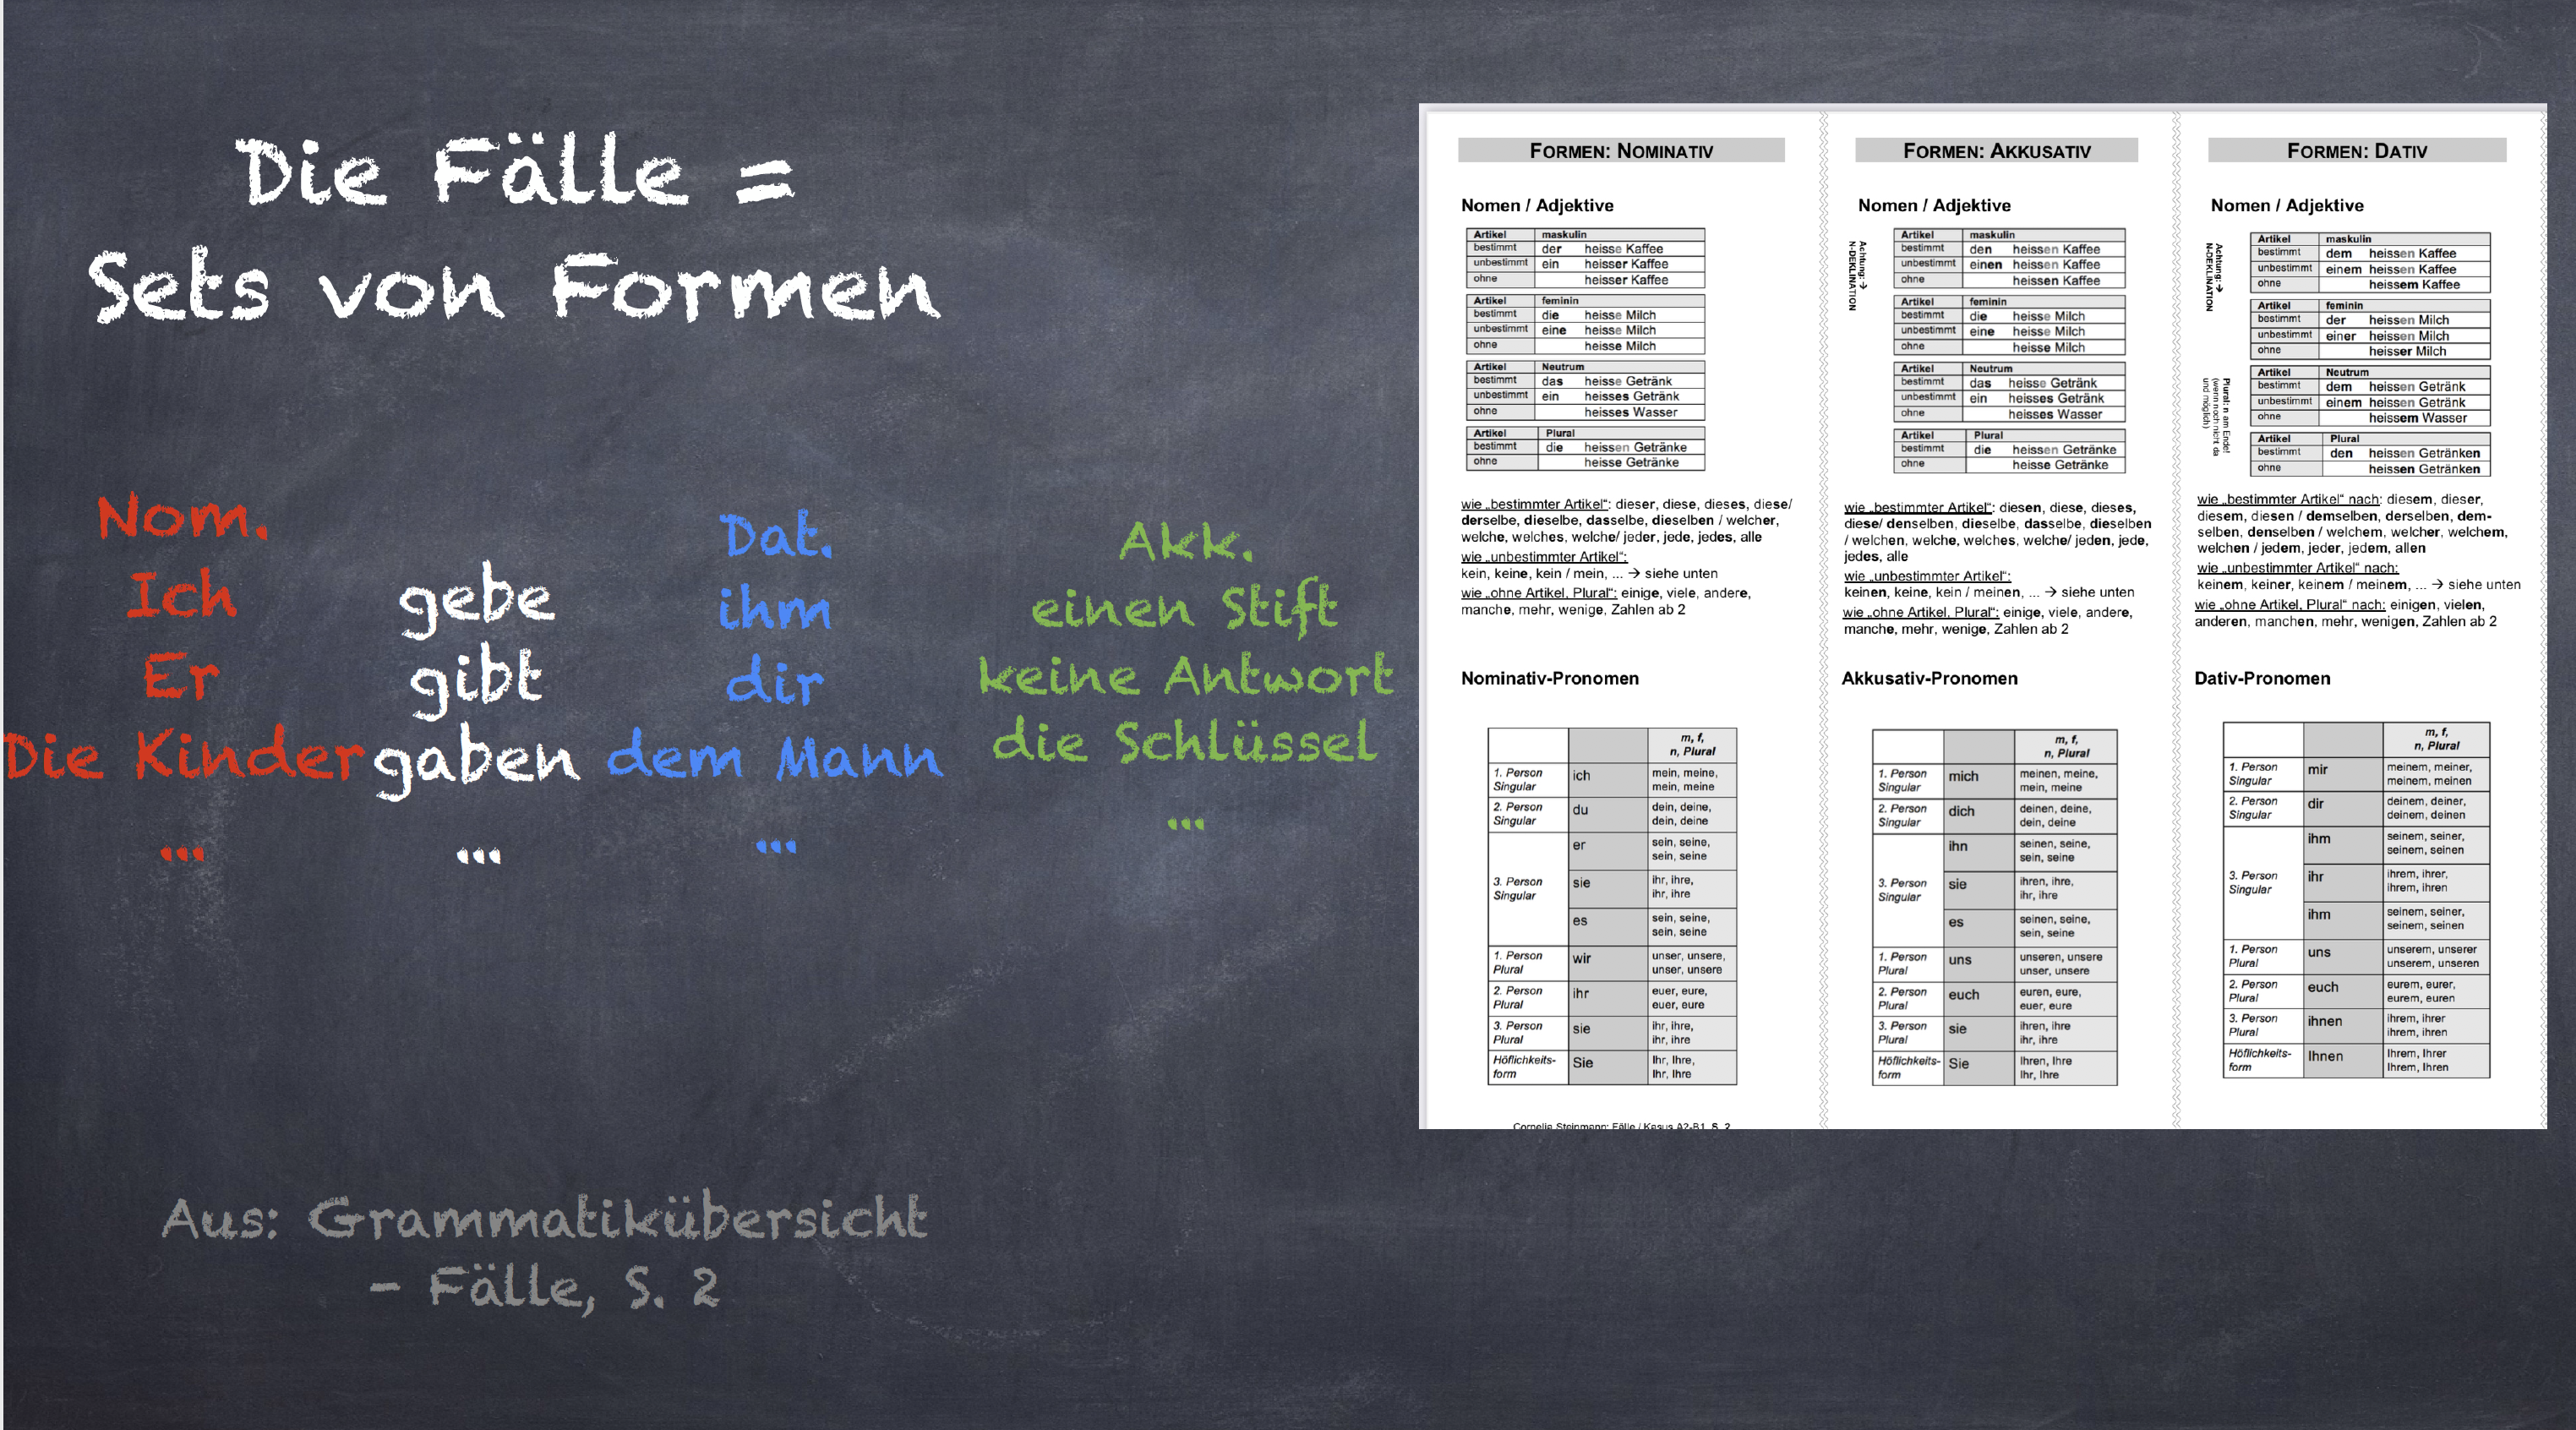 Die Fälle =
Sets von Formen
Nom.
Ich
Er
Die Kinder
...
gebe
gibt
gaben
...
Dat.
ihm
dir
dem Mann
...
Akk.
einen Stift
keine Antwort
die Schlüssel
...
Aus: Grammatikübersicht
- Fälle, S. 2
FORMEN: NOMINATIV
Nomen / Adjektive
Artikel maskulin
bestimmt der heisse Kaffee
unbestimmt ein heisser Kaffee
ohne heisser Kaffee
Artikel feminin
bestimmt die heisse Milch
unbestimmt eine heisse Milch
ohne heisse Milch
Artikel Neutrum
bestimmt das heisse Getränk
unbestimmt ein heisses Getränk
ohne heisses Wasser
Artikel Plural
bestimmt die heissen Getränke
ohne heisse Getränke
wie „bestimmter Artikel“: dieser, diese, dieses, diese/
derselbe, dieselbe, dasselbe, dieselben / welcher,
welche, welches, welche/ jeder, jede, jedes, alle
wie „unbestimmter Artikel“:
kein, keine, kein / mein, ... → siehe unten
wie „ohne Artikel, Plural“: einige, viele, andere,
manche, mehr, wenige, Zahlen ab 2
Nominativ-Pronomen
m, f,
n, Plural
1. Person Singular ich mein, meine,
mein, meine
2. Person Singular du dein, deine,
dein, deine
3. Person Singular
er sein, seine,
sein, seine
sie ihr, ihre,
ihr, ihre
es sein, seine,
sein, seine
1. Person Plural wir unser, unsere,
unser, unsere
2. Person Plural ihr euer, eure,
euer, eure
3. Person Plural sie ihr, ihre,
ihr, ihre
Höflichkeits-
form Sie Ihr, Ihre,
Ihr, Ihre
Cornelia Steinmann: Fälle / Kasus A2-B1, S. 2
FORMEN: AKKUSATIV
Nomen / Adjektive
Achtung: →
N-DEKLINATION
Artikel maskulin
bestimmt den heissen Kaffee
unbestimmt einen heissen Kaffee
ohne heissen Kaffee
Artikel feminin
bestimmt die heisse Milch
unbestimmt eine heisse Milch
ohne heisse Milch
Artikel Neutrum
bestimmt das heisse Getränk
unbestimmt ein heisses Getränk
ohne heisses Wasser
Artikel Plural
bestimmt die heissen Getränke
ohne heisse Getränke
wie „bestimmter Artikel“: diesen, diese, dieses,
diese/ denselben, dieselbe, dasselbe, dieselben
/ welchen, welche, welches, welche/ jeden, jede,
jedes, alle
wie „unbestimmter Artikel“:
keinen, keine, kein / meinen, ... → siehe unten
wie „ohne Artikel, Plural“: einige, viele, andere,
manche, mehr, wenige, Zahlen ab 2
Akkusativ-Pronomen
m, f,
n, Plural
1. Person Singular mich meinen, meine,
mein, meine
2. Person Singular dich deinen, deine,
dein, deine
3. Person Singular
ihn seinen, seine,
sein, seine
sie ihren, ihre,
ihr, ihre
es seinen, seine,
sein, seine
1. Person Plural uns unseren, unsere
unser, unsere
2. Person Plural euch euren, eure,
euer, eure
3. Person Plural sie ihren, ihre
ihr, ihre
Höflichkeits-
form Sie Ihren, Ihre
Ihr, Ihre
FORMEN: DATIV
Nomen / Adjektive
Achtung: →
N-DEKLINATION
Artikel maskulin
bestimmt dem heissen Kaffee
unbestimmt einem heissen Kaffee
ohne heissem Kaffee
Artikel feminin
bestimmt der heissen Milch
unbestimmt einer heissen Milch
ohne heisser Milch
Artikel Neutrum
bestimmt dem heissen Getränk
unbestimmt einem heissen Getränk
ohne heissem Wasser
Plural: n am Ende!
(wenn noch nicht da
und möglich)
Artikel Plural
bestimmt den heissen Getränken
ohne heissen Getränken
wie „bestimmter Artikel“ nach: diesem, dieser,
diesem, diesen / demselben, derselben, dem-
selben, denselben / welchem, welcher, welchem,
welchen / jedem, jeder, jedem, allen
wie „unbestimmter Artikel“ nach:
keinem, keiner, keinem / meinem, ... → siehe unten
wie „ohne Artikel, Plural“ nach: einigen, vielen,
anderen, manchen, mehr, wenigen, Zahlen ab 2
Dativ-Pronomen
m, f,
n, Plural
1. Person Singular mir meinem, meiner,
meinem, meinen
2. Person Singular dir deinem, deiner,
deinem, deinen
3. Person Singular
ihm seinem, seiner,
seinem, seinen
ihr ihrem, ihrer,
ihrem, ihren
ihm seinem, seiner,
seinem, seinen
1. Person Plural uns unserem, unserer
unserem, unseren
2. Person Plural euch eurem, eurer,
eurem, euren
3. Person Plural ihnen ihrem, ihrer
ihrem, ihren
Höflichkeits-
form Ihnen Ihrem, Ihrer
Ihrem, Ihren